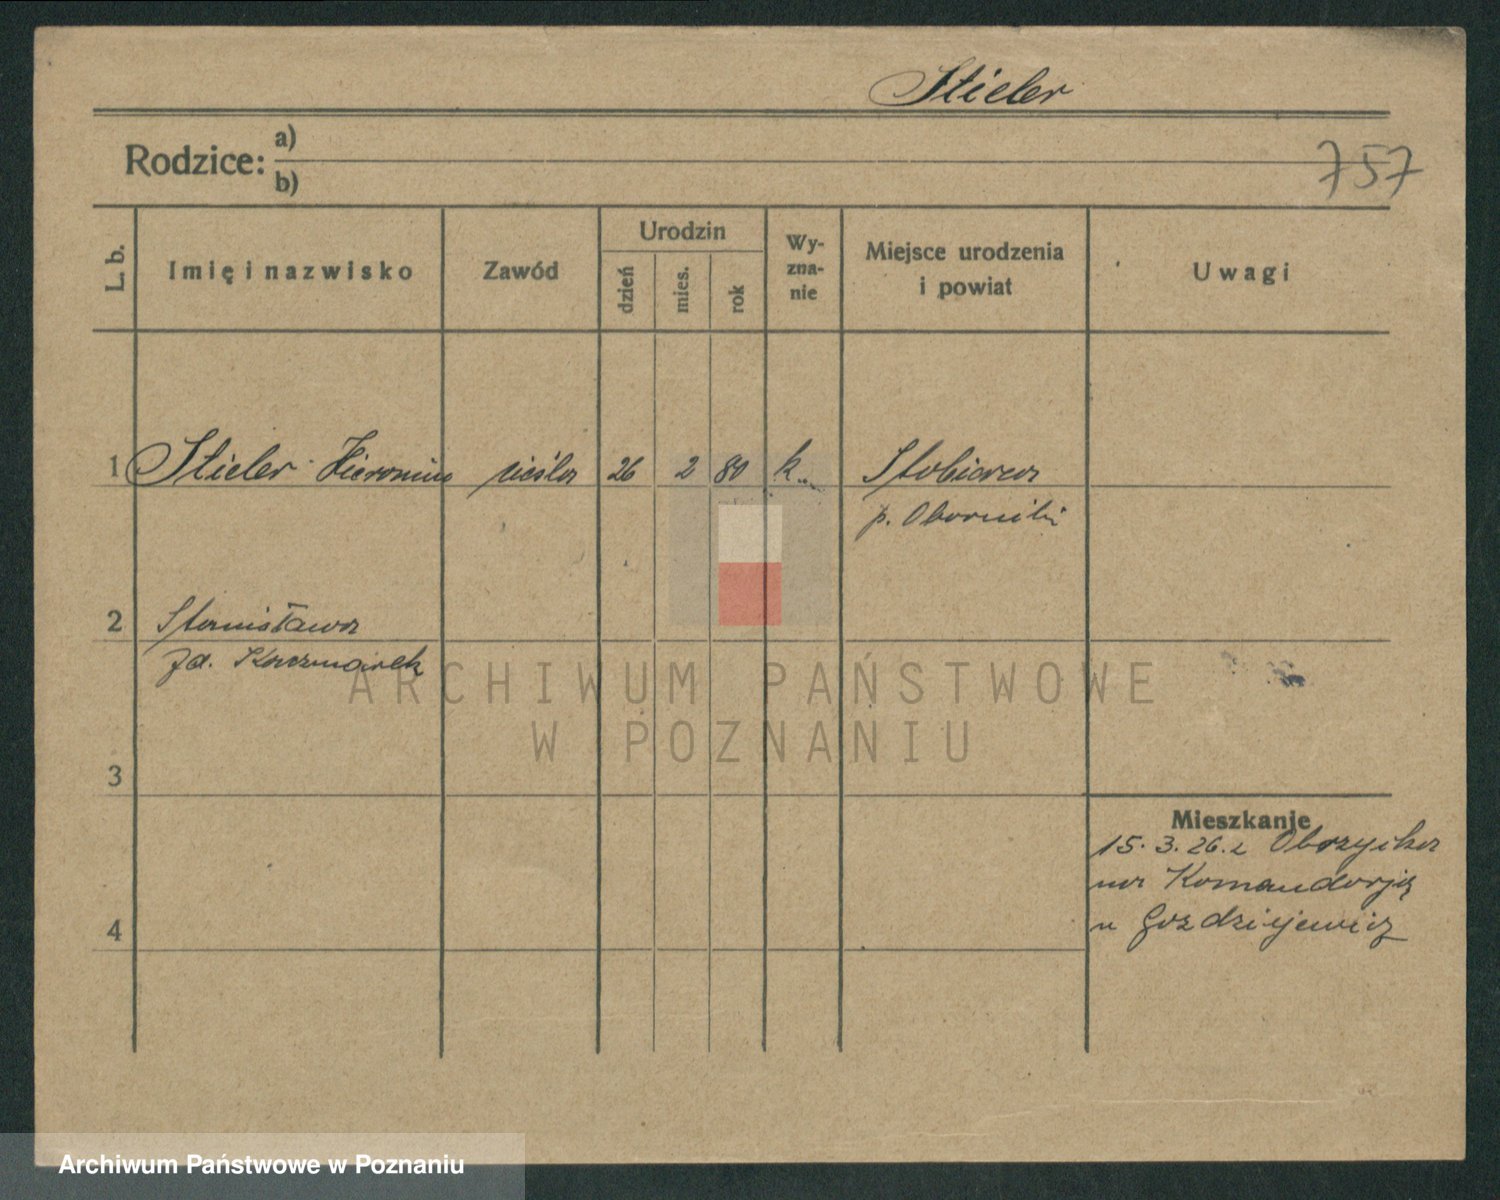 Stieler
Rodzice: a)
b)
757
L. b.
Imię i nazwisko
Zawód
Urodzin
dzień
mies.
rok
Wy-
zna-
nie
Miejsce urodzenia
i powiat
Uwagi
1 Stieler Hieronim cieśla 26 2 80 k.
p. Oborniki
2 Stanisława
zd. Kaczmarek
3
4
Mieszkanie
15. 3. 26. z Obrzycka
na Komandorją
u Gozdziejewicz
ARCHIWUM PAŃSTWOWE
W POZNANIU
Archiwum Państwowe w Poznaniu